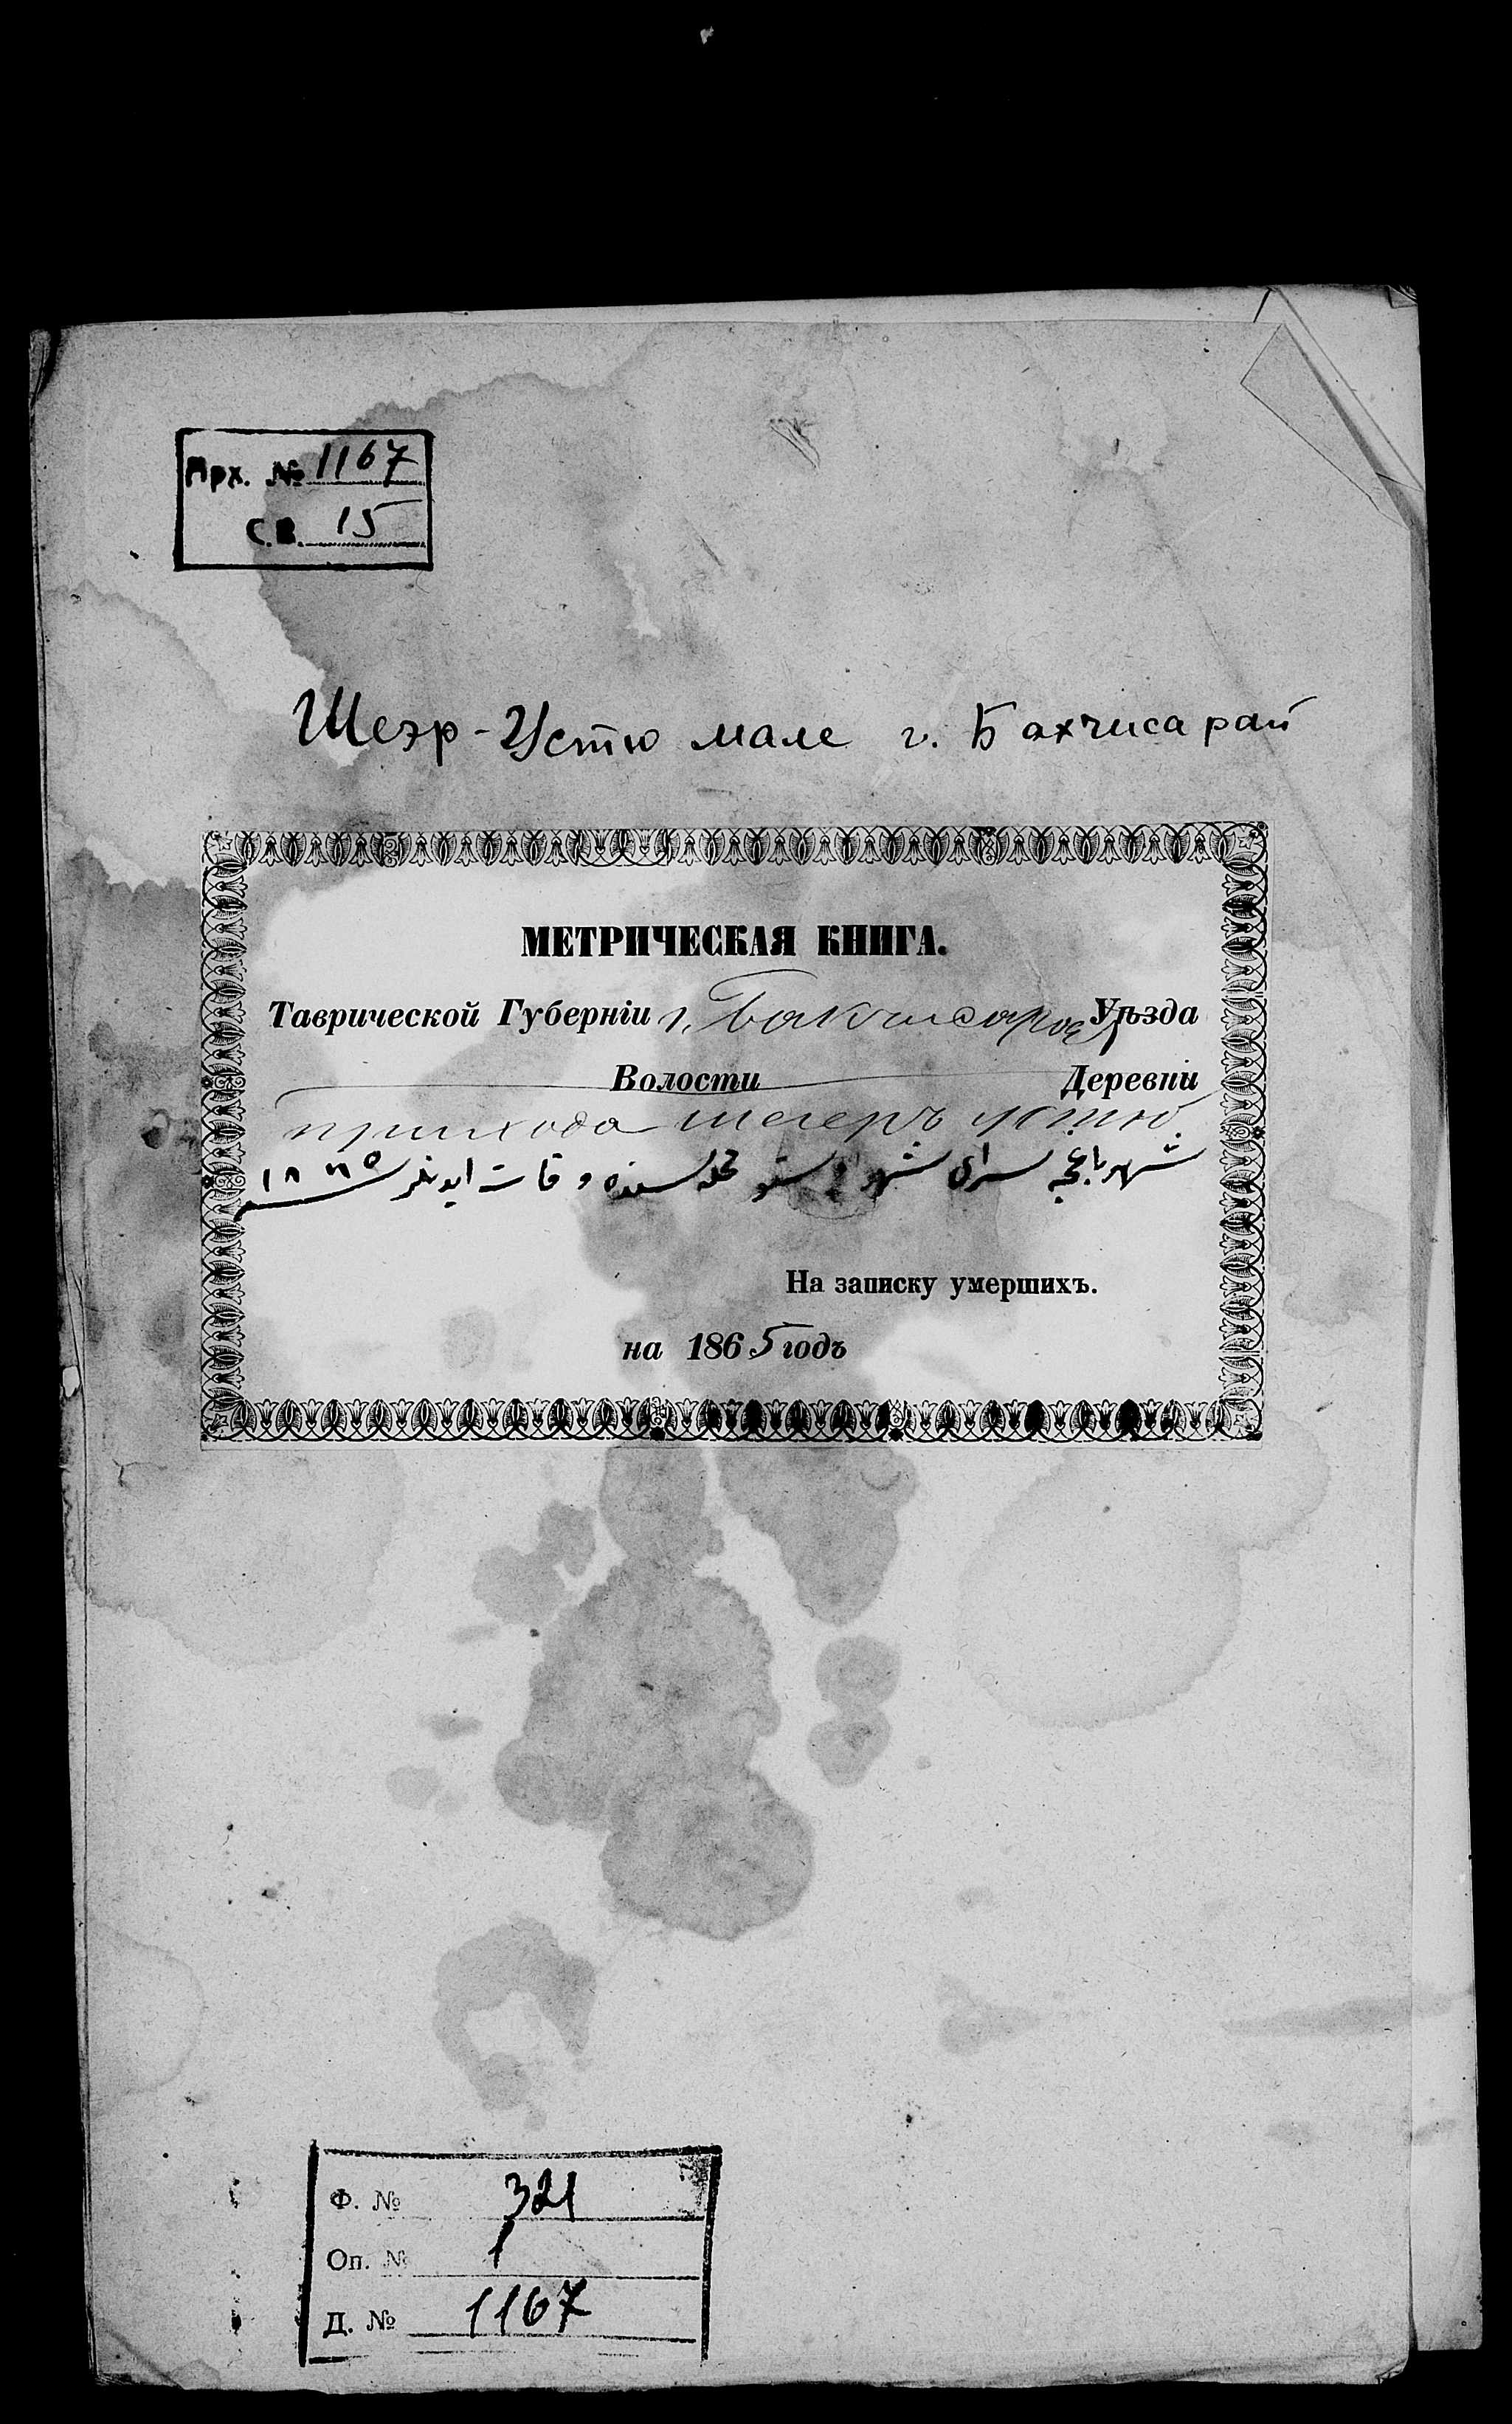 Арх. № 1167
С.В. 15
Шеэр-Устю мале г. Бахчисарай
МЕТРИЧЕСКАЯ КНИГА.
Таврической Губерніи г. Бакчисарай Уѣзда
Волости Деревни
прихода шегеръ устю
شهر باغچه سرای شهر اوستو محله سنده وفات ایدنلر ١٨٦٥
На записку умершихъ.
на 1865 годъ
Ф. № 321
Оп. № 1
Д. № 1167